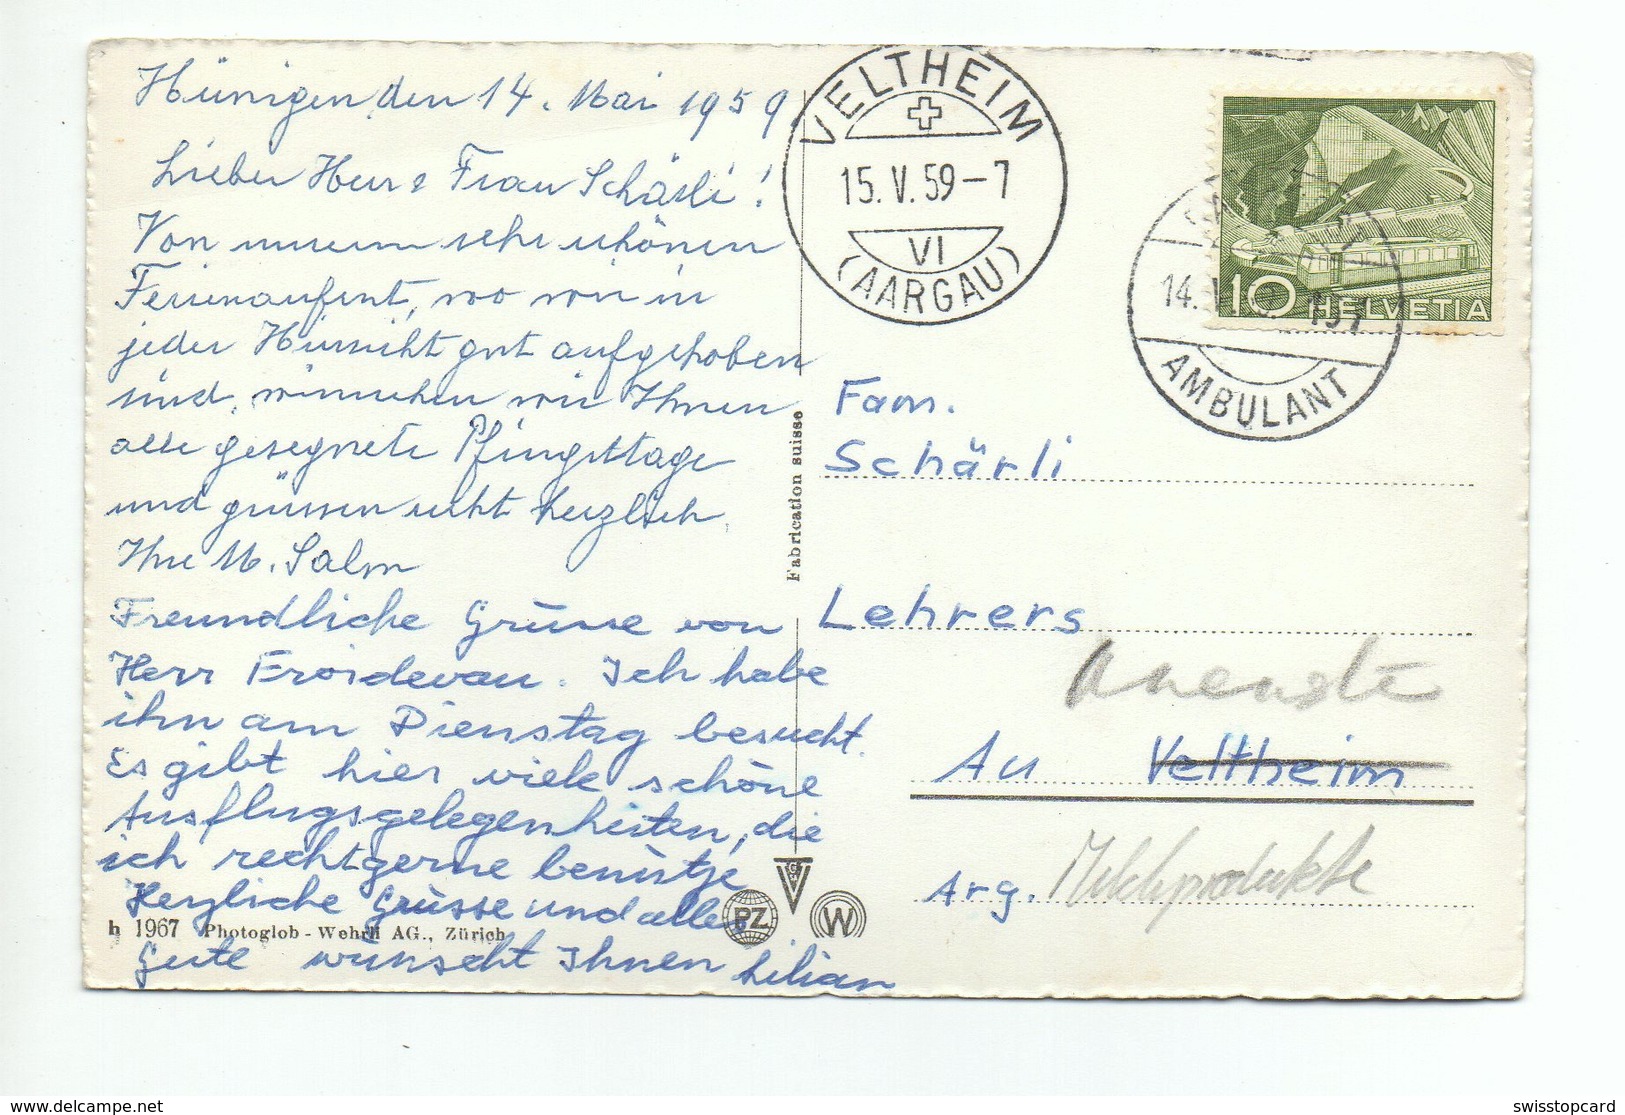 Hünigen den 14. Mai 1959
Lieber Herr & Frau Schärli!
Von unserem sehr schönen
Ferienaufent, wo wir in
jeder Hinsicht gut aufgehoben
sind, wünschen wir Ihnen
alle gesegnete Pfingsttage
und grüssen recht herzlich
Ihre M. Salm
Freundliche Grüsse von
Herr Froidevau. Ich habe
ihn am Dienstag besucht.
Es gibt hier viele schöne
Ausflugsgelegenheiten, die
ich recht gerne benütje
Herzliche Grüsse und alles
Gute wünscht Ihnen Lilian
h 1967 Photoglob - Wehrli AG., Zürich
Fabrication suisse
PZ
G
W
VELTHEIM
15. V. 59 - 7
VI
(AARGAU)
14. V.
AMBULANT
10 HELVETIA
Fam.
Schärli
Lehrers
Au Veltheim
Arg. Milchprodukte
swisstopcard